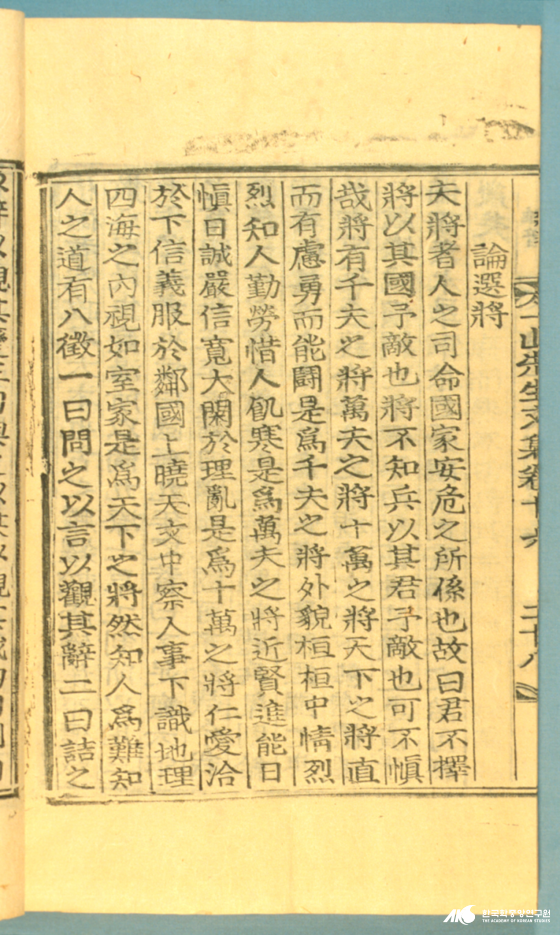 一山先生文集卷十六
二十八
論選將
夫將者人之司命國家安危之所係也故曰君不擇
將以其國予敵也將不知兵以其君予敵也可不愼
哉將有千夫之將萬夫之將十萬之將天下之將直
而有慮勇而能鬪是爲千夫之將外貌桓桓中情烈
烈知人勤勞惜人飢寒是爲萬夫之將近賢進能日
愼日誠嚴信寬大閑於理亂是爲十萬之將仁愛洽
於下信義服於鄰國上曉天文中察人事下識地理
四海之內視如室家是爲天下之將然知人爲難知
人之道有八徵一曰問之以言以觀其辭二曰詰之
한국학중앙연구원
THE ACADEMY OF KOREAN STUDIES